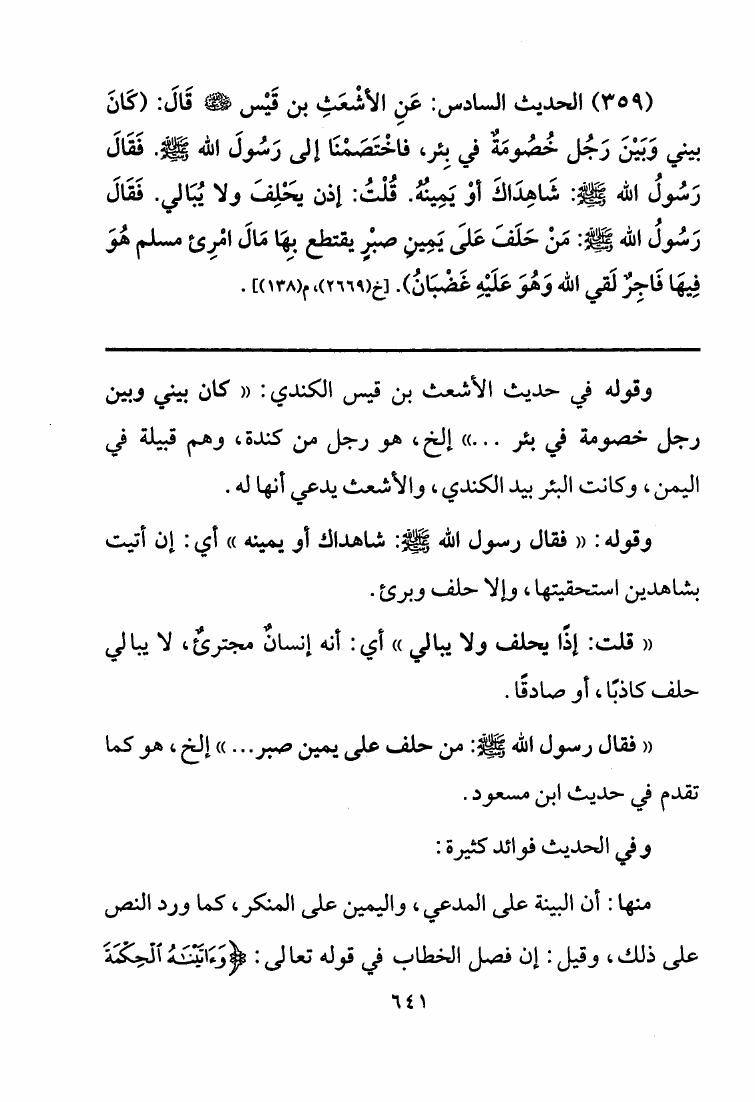 (٣٥٩) الحديث السادس: عَنِ الأشْعَثِ بن قَيْس رضي الله عنه قَالَ: (كَانَ
بيني وَبَيْنَ رَجُل خُصُومَةٌ في بئر، فاخْتَصَمْنَا إلى رَسُولَ الله ﷺ. فَقَالَ
رَسُولُ الله ﷺ: شَاهِدَاكَ أوْ يَمِينُهُ. قُلْتُ: إذن يَحْلِفَ ولا يُبَالي. فَقَالَ
رَسُولُ الله ﷺ: مَنْ حَلَفَ عَلَى يَمِينِ صبْرٍ يقتطع بِهَا مَالَ امْرِئ مسلم هُوَ
فِيهَا فَاجِرٌ لَقي الله وَهُوَ عَلَيْهِ غَضْبَانُ). [خ(٢٦٦٩)، م(١٣٨)] .
وقوله في حديث الأشعث بن قيس الكندي: « كان بيني وبين
رجل خصومة في بئر ...» إلخ، هو رجل من كندة، وهم قبيلة في
اليمن، وكانت البئر بيد الكندي، والأشعث يدعي أنها له.
وقوله: « فقال رسول الله ﷺ: شاهداك أو يمينه » أي: إن أتيت
بشاهدين استحقيتها، وإلا حلف وبرئ.
« قلت: إذًا يحلف ولا يبالي » أي: أنه إنسانٌ مجترئٌ، لا يبالي
حلف كاذبًا، أو صادقًا.
« فقال رسول الله ﷺ: من حلف على يمين صبر...» إلخ، هو كما
تقدم في حديث ابن مسعود.
وفي الحديث فوائد كثيرة:
منها: أن البينة على المدعي، واليمين على المنكر، كما ورد النص
على ذلك، وقيل: إن فصل الخطاب في قوله تعالى: ﴿وَءَاتَيْنَٰهُ ٱلْحِكْمَةَ
٦٤١